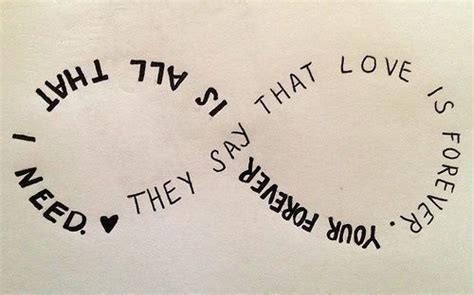 THEY SAY THAT LOVE IS FOREVER.
YOUR FOREVER IS ALL THAT I NEED. ♥